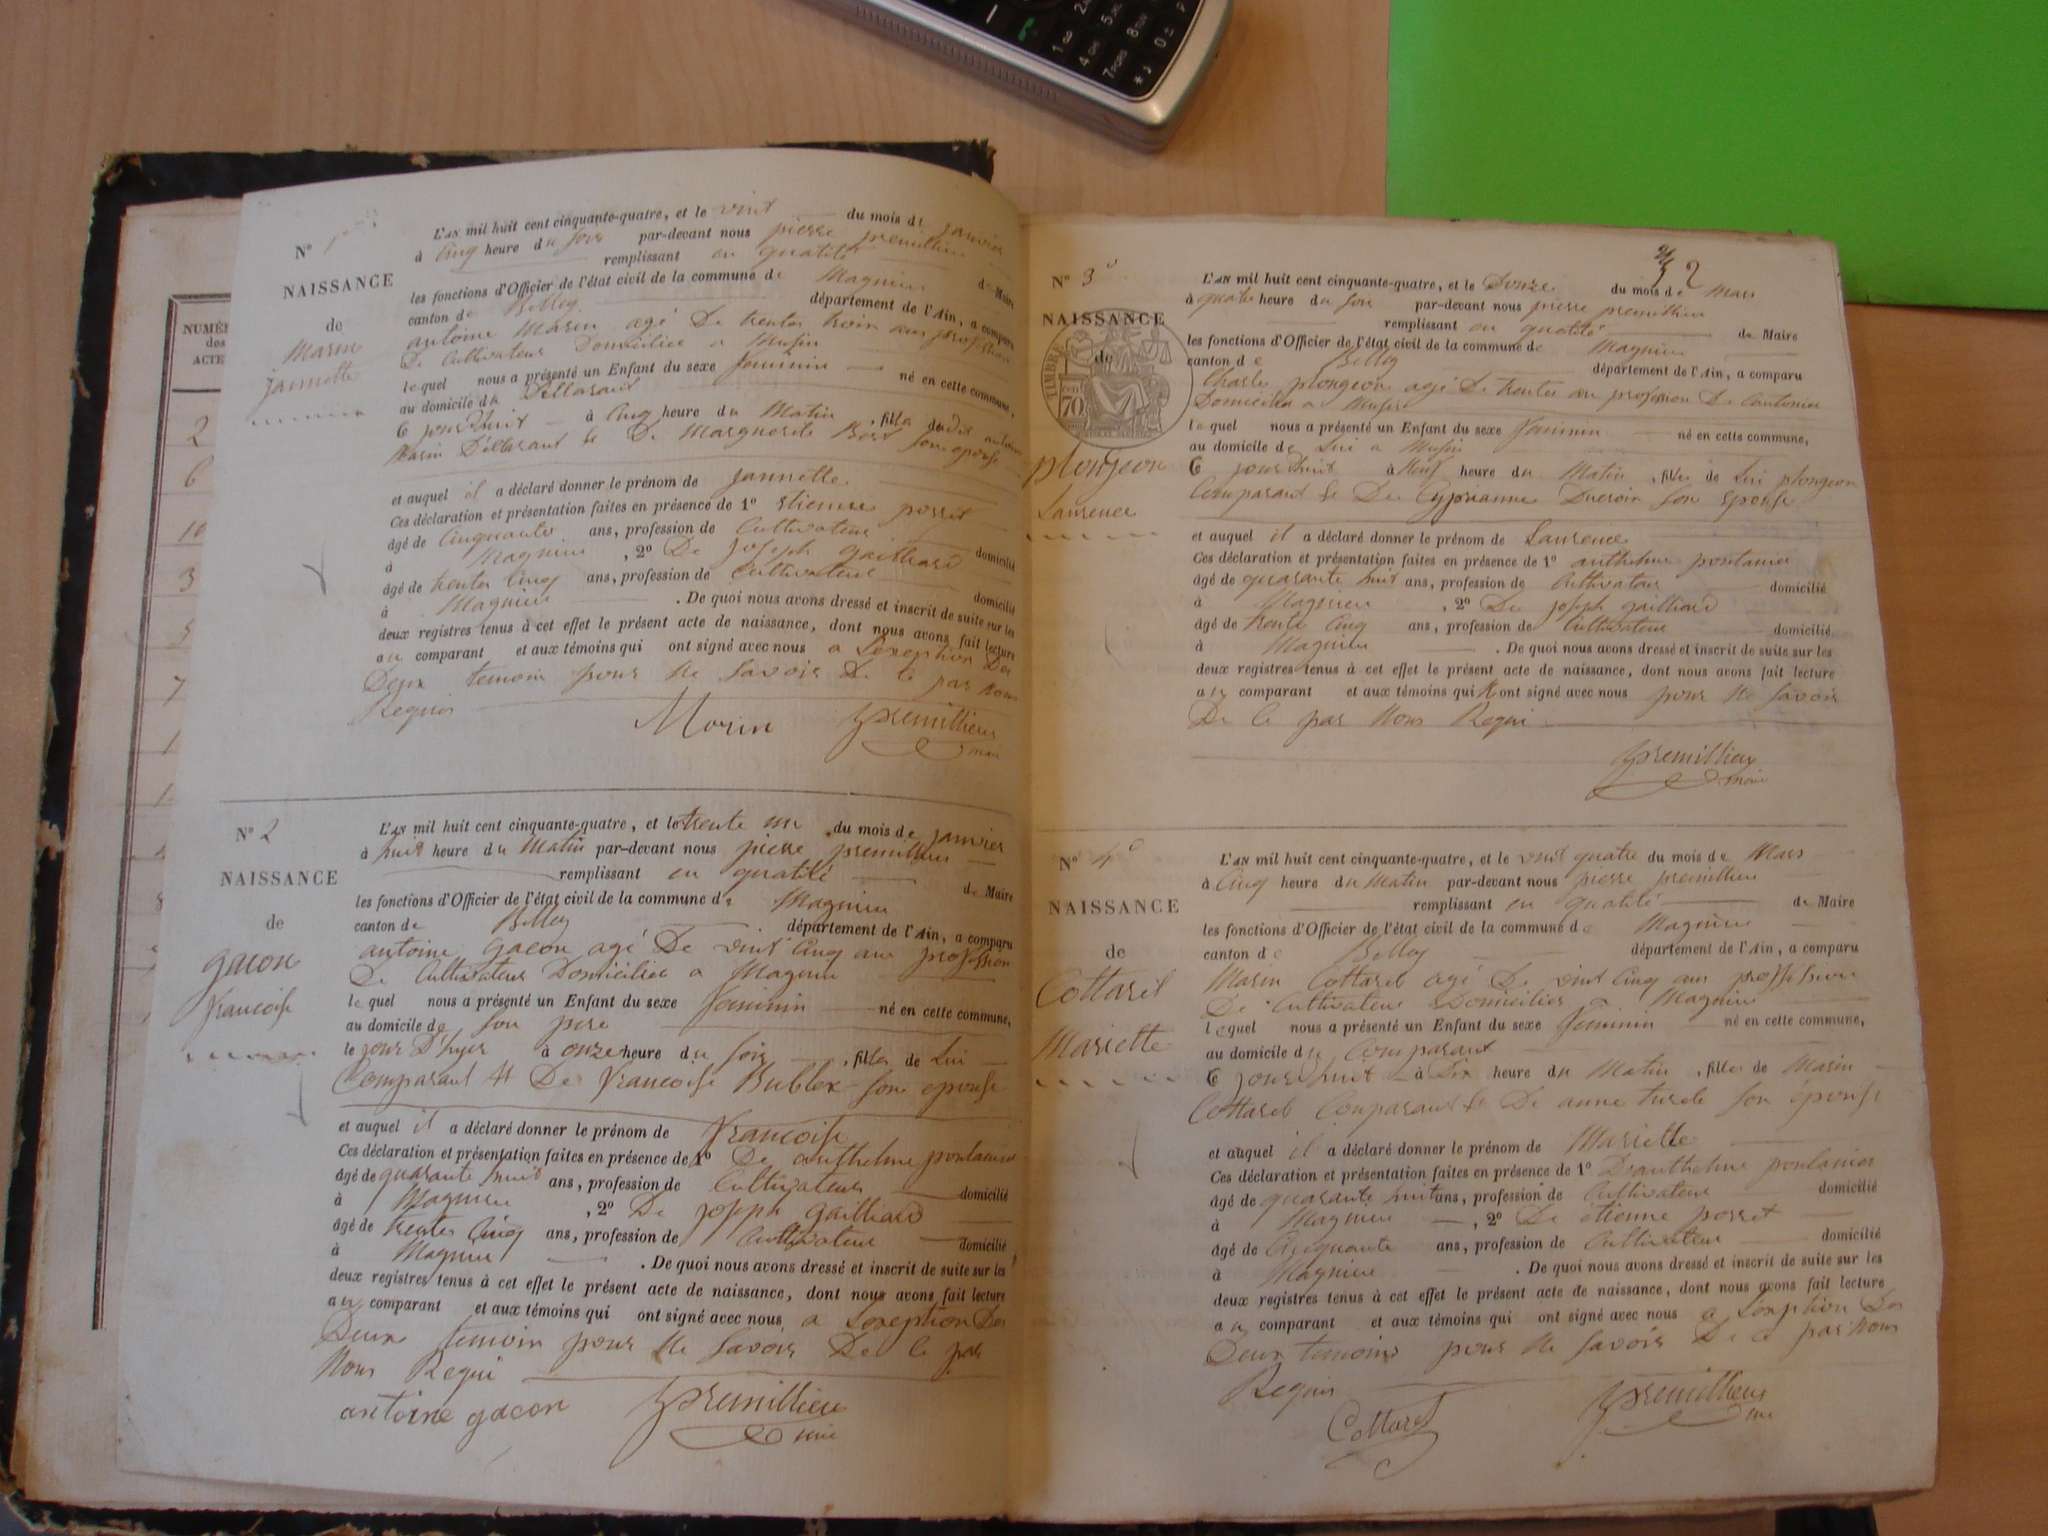 NUMÉ
des
ACTE
2
6
10
3
5
7
1
1
N° 1
NAISSANCE
de
Marin
jannette
L'AN mil huit cent cinquante-quatre, et le vint du mois de janvier
à Cinq heure du Soir par-devant nous pierre premillieu
remplissant en quatilé de Maire
les fonctions d'Officier de l'état civil de la commune de Magnieu
canton de Belley département de l'Ain, a comparu
antoine Marin agé De trentes trois ans profession
De Cultivateur Domicilier a Musin
lequel nous a présenté un Enfant du sexe feminin né en cette commune,
au domicile du Déclarant
à Cinq heure du Matin, fille dudit antoine
Marin Déclarant & De Marguerite son epouse
et auquel il a déclaré donner le prénom de jannette
Ces déclaration et présentation faites en présence de 1° Etienne porret
âgé de Cinquante ans, profession de Cultivateur domicilié
à Magnieu, 2° De joseph gailliard
âgé de trentes Cinq ans, profession de Cultivateur domicilié
à Magnieu. De quoi nous avons dressé et inscrit de suite sur les
deux registres tenus à cet effet le présent acte de naissance, dont nous avons fait lecture
au comparant et aux témoins qui ont signé avec nous a Lexeption Des
Deux temoin pour ne Savoir De ce par Nous
Requis
Morin premillieu
maire
N° 2
NAISSANCE
de
gacon
francoise
L'AN mil huit cent cinquante-quatre, et le trente un du mois de janvier
à huit heure du Matin par-devant nous pierre premillieu
remplissant en quatilé de Maire
les fonctions d'Officier de l'état civil de la commune de Magnieu
canton de Belley département de l'Ain, a comparu
antoine gacon agé De vint Cinq ans profession
De Cultivateur Domicilier a Magnieu
lequel nous a présenté un Enfant du sexe feminin né en cette commune,
au domicile de Son pere
le jour D'hyer à onze heure du Soir, fille de Lui
Comparant & De francoise Bublex Son epouse
et auquel il a déclaré donner le prénom de francoise
Ces déclaration et présentation faites en présence de 1° De anthelme pontanier
âgé de quarante huit ans, profession de Cultivateur domicilié
à Magnieu, 2° De joseph gailliard
âgé de trentes Cinq ans, profession de Cultivateur domicilié
à Magnieu. De quoi nous avons dressé et inscrit de suite sur les
deux registres tenus à cet effet le présent acte de naissance, dont nous avons fait lecture
au comparant et aux témoins qui ont signé avec nous a Lexeption Des
Deux temoin pour ne Savoir De ce par
Nous Requi
antoine gacon premillieu
maire
2
N° 3
NAISSANCE
de
TIMBRE
70
plongeon
Laurence
L'AN mil huit cent cinquante-quatre, et le Douze du mois de Mars
à quatre heure du Soir par-devant nous pierre premillieu
remplissant en quatilé de Maire
les fonctions d'Officier de l'état civil de la commune de Magnieu
canton de Belley département de l'Ain, a comparu
Charle plongeon agé De trentes ans profession De
Domicilier a Musin
lequel nous a présenté un Enfant du sexe feminin né en cette commune,
au domicile de Lui a Musin
à Neuf heure du Matin, fille de Lui plongeon
Comparant & De Cyprianne Ducroix Son Epouse
et auquel il a déclaré donner le prénom de Laurence
Ces déclaration et présentation faites en présence de 1° anthelme pontanier
âgé de quarante huit ans, profession de Cultivateur domicilié
à Magnieu, 2° De joseph gailliard
âgé de trente Cinq ans, profession de Cultivateur domicilié
à Magnieu. De quoi nous avons dressé et inscrit de suite sur les
deux registres tenus à cet effet le présent acte de naissance, dont nous avons fait lecture
au comparant et aux témoins qui Nont signé avec nous pour ne Savoir
De ce par Nous Requi
premillieu
maire
N° 4
NAISSANCE
de
Cottarel
Mariette
L'AN mil huit cent cinquante-quatre, et le vint quatre du mois de Mars
à Cinq heure du Matin par-devant nous pierre premillieu
remplissant en quatilé de Maire
les fonctions d'Officier de l'état civil de la commune de Magnieu
canton de Belley département de l'Ain, a comparu
Marin Cottarel agé De vint Cinq ans proffession
De Cultivateur Domicilier a Magnieu
lequel nous a présenté un Enfant du sexe feminin né en cette commune,
au domicile du Comparant
à Dix heure du Matin, fille de Marin
Cottarel Comparant & De anne Son épouse
et auquel il a déclaré donner le prénom de Mariette
Ces déclaration et présentation faites en présence de 1° D'anthelme pontanier
âgé de quarante huit ans, profession de Cultivateur domicilié
à Magnieu, 2° De etienne porret
âgé de Cinquante ans, profession de Cultivateur domicilié
à Magnieu. De quoi nous avons dressé et inscrit de suite sur les
deux registres tenus à cet effet le présent acte de naissance, dont nous avons fait lecture
au comparant et aux témoins qui ont signé avec nous a Lexeption Des
Deux temoins pour ne Savoir De ce par Nous
Requis
Cottarel premillieu